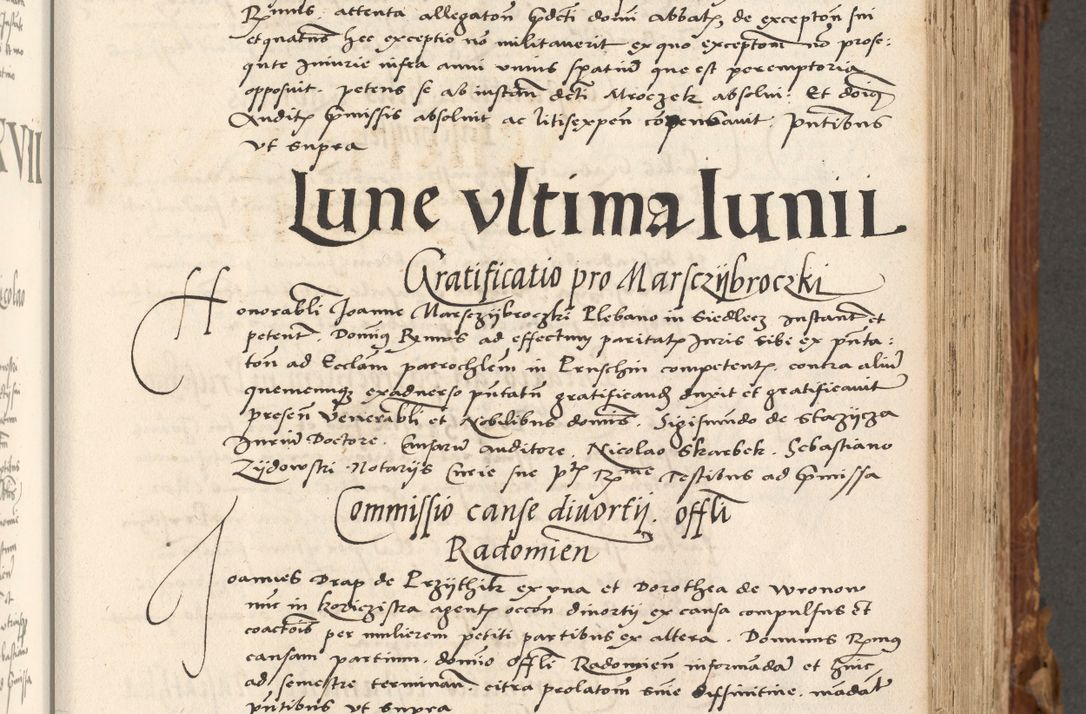 R̃mus. attenta allegatoñ p̃dcti domi Abbatꝭ de exceptoñ sui
etquateñs hec exceptio nõ militauerit ex quo exceptoem nõ prose:
qute Iniurie infra anni vnius spatiũ que est peremptoria
opposuit. petens se ab instañ dcti Mroczek absolui. Et
Auditꝭ p̃missis absoluit ac litisexpeñ copensauit. p̃ntibus
vt supra
Lune vltima Iunii
Gratificatio pro Marsczijbroczki
Honorabĩli Ioanne Marsczijbroczki Plebano in Siedlecz Instañt et
petent̃. Domĩnus R̃mus ad effectum paritatꝭ Iuris sibi ex p̃nta:
toñ ad Eccĩam parrochĩem in Pruschin competentꝭ. contra aliũ
quemcunqꝫ exaduerso p̃ntatũ gratificandũ duxit et gratificauit
preseñ Venerabĩli et Nobilibus domĩs. Sigismũdo de Stczijcza
Iuriũ Doctore. Causarũ auditore. Nicolao Skarbek. Sebastiano
Zijdowski Notarijs Curie sue p̃tꝭ R̃me Testibus ad p̃missa
Commissio cause diuortij. offĩli
Radomien
Ioannes Drap de Przijthik ex vna et Dorothea de Wronow
nũc in kozieczistra agentꝭ occoñ diuortij ex causa compulsus et
coactois per mulierem petiti partibus ex altera. Dominus R̃mus
causam partium. domio Offĩli Radomieñ informãdã et hinc
ad semestre terminañ. citra prolatoñ sñie diffinitiue. mãdat̃
p̃ntibus vt supra